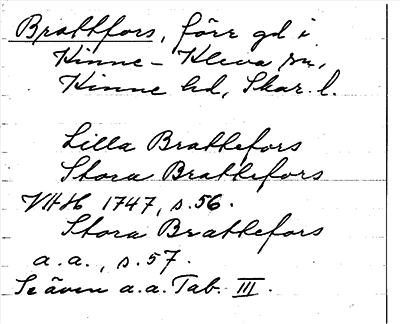 Brattfors, förr gd i
Kinne-Kleva sn,
Kinne hd, Skar. l.
Lilla Brattefors
Stora Brattefors
VHH 1747, s. 56.
Stora Brattefors
a.a., s. 57.
Se även a.a. Tab. III.